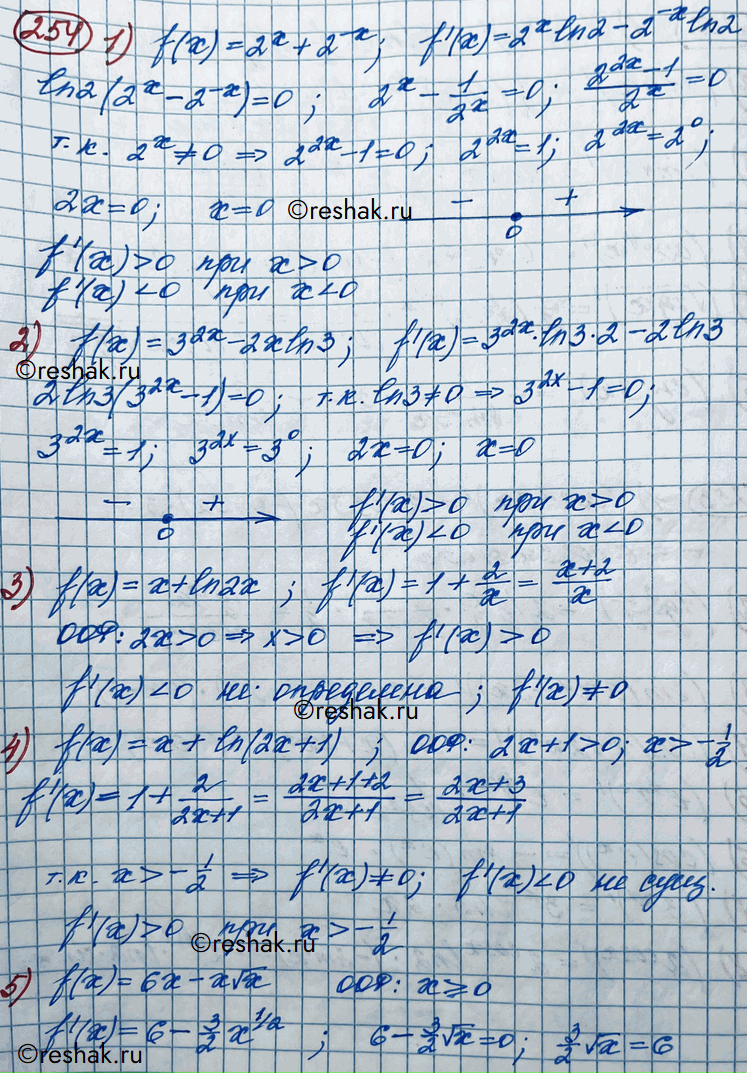 254 1) f(x) = 2^x + 2^{-x}; f'(x) = 2^x ln2 - 2^{-x} ln2
ln2(2^x - 2^{-x}) = 0; 2^x - 1/2^x = 0; (2^{2x} - 1)/2^x = 0
т.к. 2^x ≠ 0 ⇒ 2^{2x} - 1 = 0; 2^{2x} = 1; 2^{2x} = 2^0;
2x = 0; x = 0 ©reshak.ru - + 0
f'(x) > 0 при x > 0
f'(x) < 0 при x < 0
2) f(x) = 3^{2x} - 2x ln3; f'(x) = 3^{2x} · ln3 · 2 - 2 ln3
©reshak.ru
2 ln3(3^{2x} - 1) = 0; т.к. ln3 ≠ 0 ⇒ 3^{2x} - 1 = 0;
3^{2x} = 1; 3^{2x} = 3^0; 2x = 0; x = 0
- + 0 f'(x) > 0 при x > 0
f'(x) < 0 при x < 0
3) f(x) = x + ln2x; f'(x) = 1 + 2/x = (x+2)/x
ООФ: 2x > 0 ⇒ x > 0 ⇒ f'(x) > 0
f'(x) < 0 не определена; f'(x) ≠ 0
©reshak.ru
4) f(x) = x + ln(2x+1); ООФ: 2x+1 > 0; x > -1/2
f'(x) = 1 + 2/(2x+1) = (2x+1+2)/(2x+1) = (2x+3)/(2x+1)
т.к. x > -1/2 ⇒ f'(x) ≠ 0; f'(x) < 0 не сущ.
f'(x) > 0 при x > -1/2
©reshak.ru
5) f(x) = 6x - x√x ООФ: x ≥ 0
f'(x) = 6 - 3/2 x^{1/2}; 6 - 3/2 √x = 0; 3/2 √x = 6
©reshak.ru